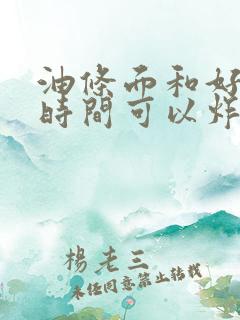 油條而和好
時間可以炸
楊老三
未任同意禁止转載